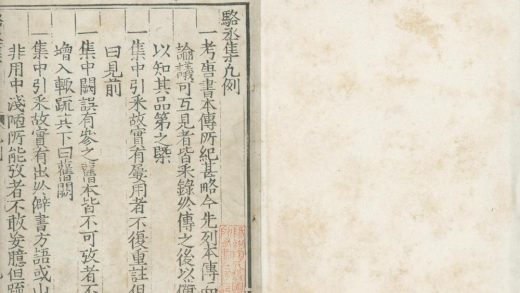 駱丞集凡例
一考唐書本傳所紀甚略今先列本傳而
論議可互見者皆采錄以傳之後以俻
以知其品第之槩
一集中引采故實有屢用者不復重註但
曰見前
一集中闕誤有參之諸本皆不可攷者不
增入輒疏其下曰舊闕
一集中引采故實有出以僻書方語或山
非用中淺陋所能攷者不敢妄臆但疏